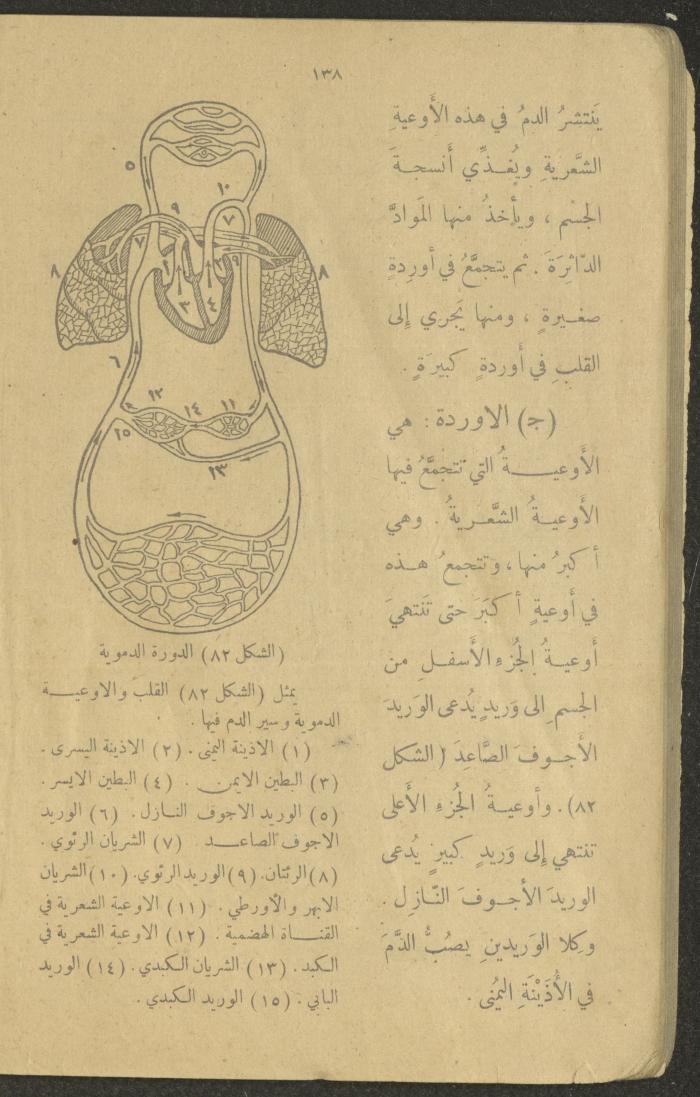 ١٣٨
يَنتشرُ الدمُ في هذه الأَوعيةِ
الشَّعريةِ ويُغـذِّي أَنسجـةَ
الجسْم ، ويأخذُ منها المَوادَّ
الدّاثِرَةَ . ثم يتجمَّعُ في أوردةٍ
صغـيرةٍ ، ومنها يَجري إِلى
القلبِ في أَوردةٍ كبيرَةٍ .
(ج) الاوردة : هي
الأَوعيــةُ التي تتجمَّعُ فيها
الأَوعيـةُ الشَّعـريةُ . وهي
أكبرُ منها ، وتتجمعُ هـذه
في أَوعيةٍ أكبَرَ حتى تَنتهيَ
أَوعيـةُ الجُزءِ الأَسفـلِ من
الجسمِ الى وَريدٍ يُدعى الوَريدَ
الأَجـوفَ الصَّاعِدَ (الشكل
٨٢). وأَوعيـةُ الجُزءِ الأَعلى
تنتهي إِلى وَريدٍ كبيرٍ يُدعى
الوريدَ الأَجـوفَ النّـازِل .
وكِلا الوَريدينِ يصُبُّ الدَّمَ
في الأُذَيْنَةِ اليُمْنى .
٥
١٠
٩
٧
٧
٨
١
٢
٩
٨
٣
٤
٦
١٢
١٤
١١
١٥
١٣
(الشكل ٨٢) الدورة الدموية
يمثل (الشكل ٨٢) القلب والاوعيــة
الدموية وسير الدم فيها .
(١) الاذينة اليمنى . (٢) الاذينة اليسرى .
(٣) البطين الايمن . (٤) البطين الايسر .
(٥) الوريد الاجوف النـازل . (٦) الوريد
الاجوف الصاعـد (٧) الشريان الرئوي .
(٨) الرئتان. (٩) الوريد الرئوي. (١٠) الشريان
الابهر والأورطي . (١١) الاوعية الشعرية في
القنـاة الهضمية . (١٢) الاوعية الشعرية في
الكبد . (١٣) الشريان الكبدي . (١٤) الوريد
البابي . (١٥) الوريد الكبدي .